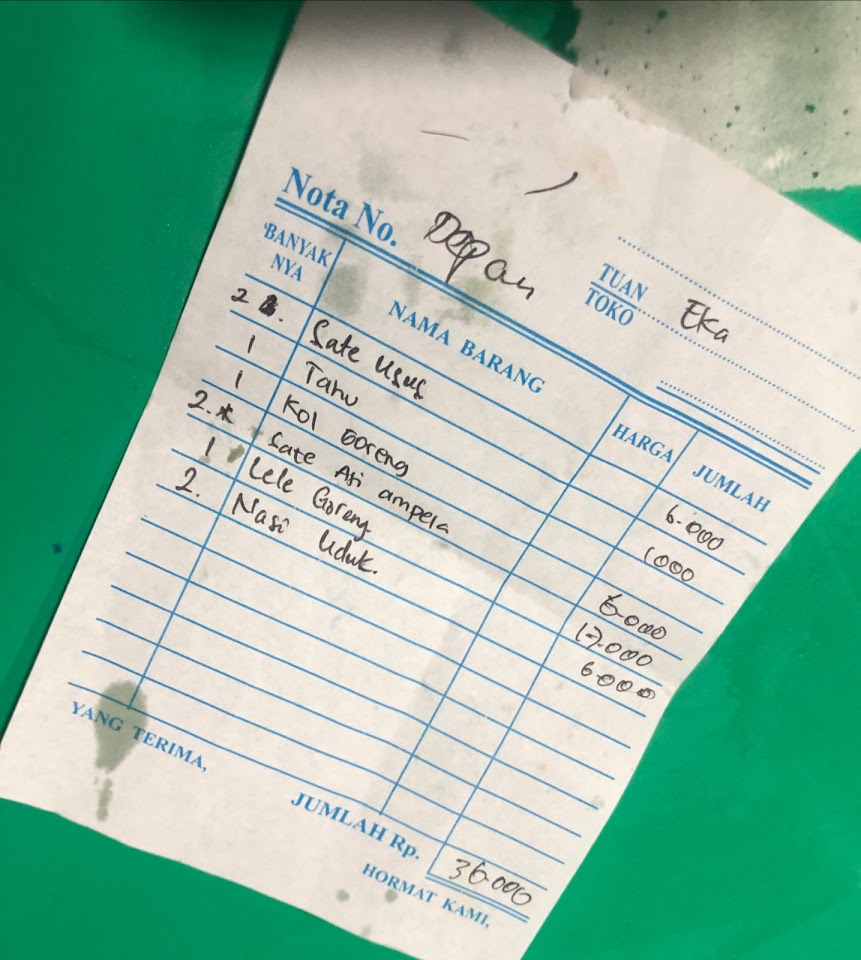 Nota No. Depan
TUAN
TOKO Eka
BANYAK NYA NAMA BARANG HARGA JUMLAH
2 Sate Usus 6.000
1 Tahu 1000
1 Kol Goreng
2. Sate Ati ampela 6.000
1 Lele Goreng 17.000
2. Nasi Uduk. 6.000
YANG TERIMA,
JUMLAH Rp. 36.000
HORMAT KAMI,